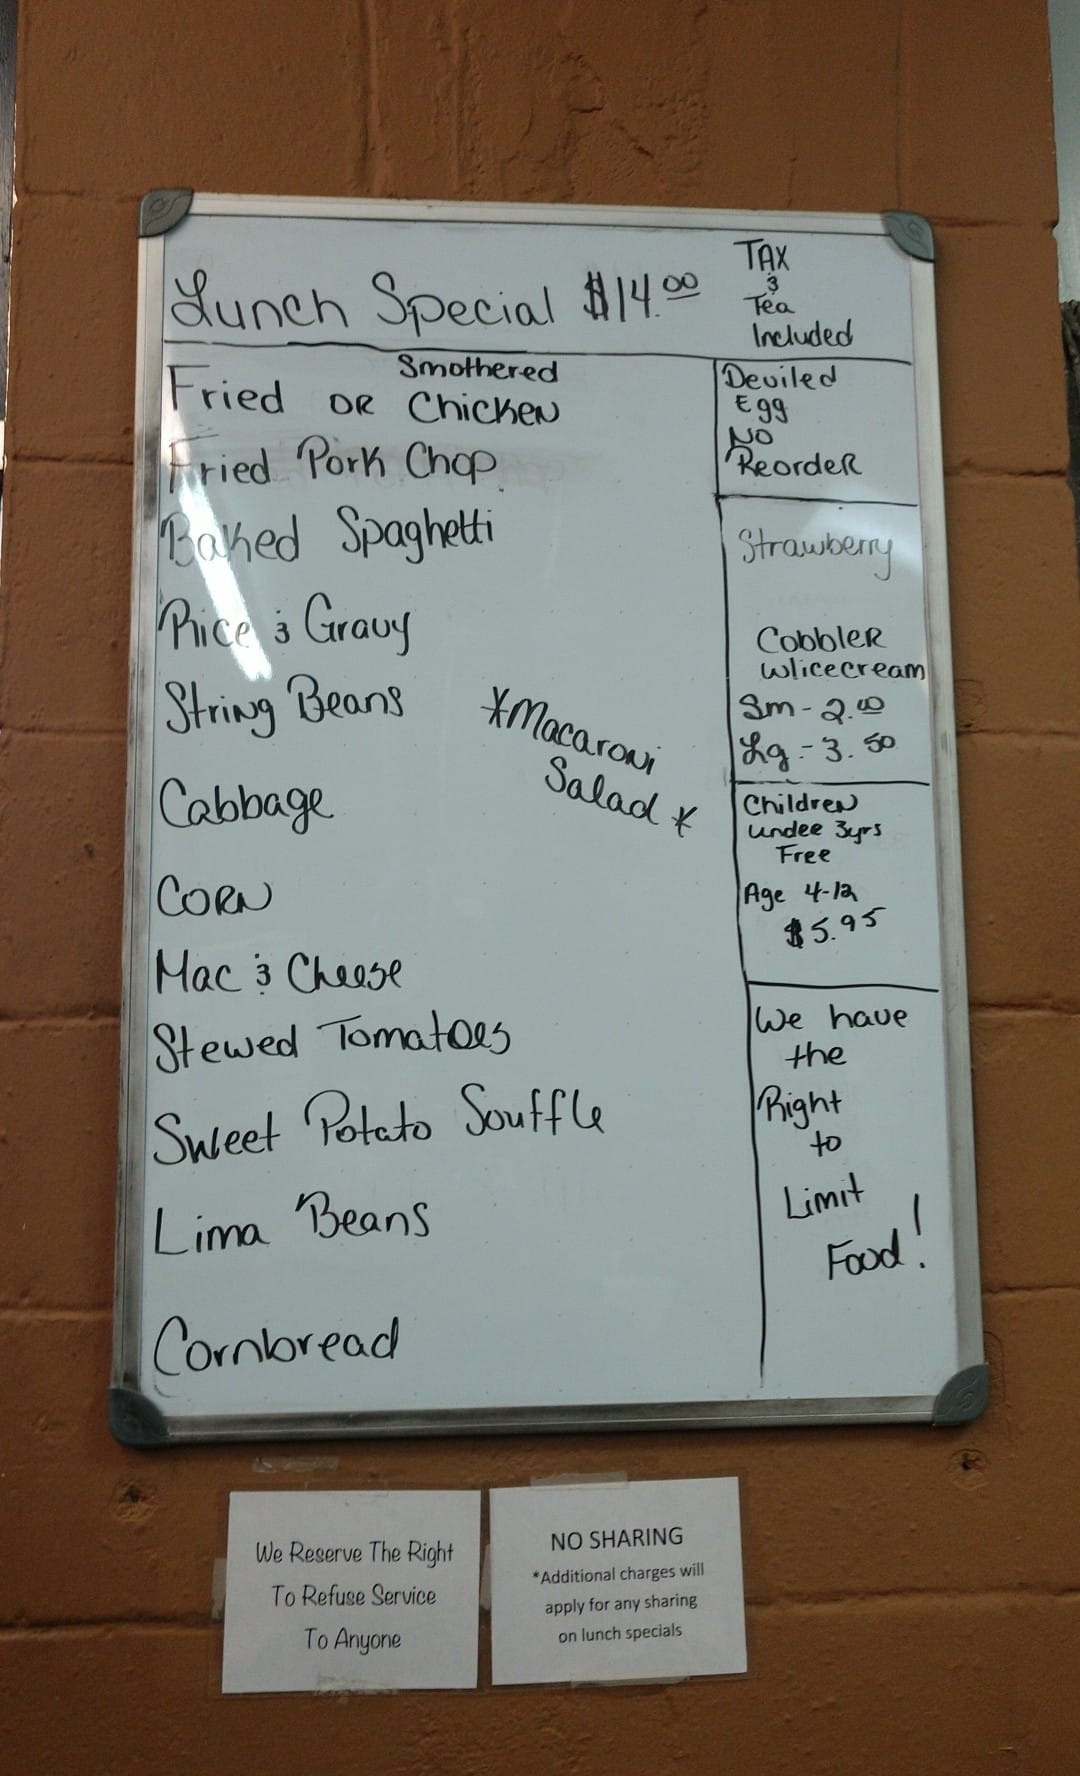 Lunch Special $14.00
TAX
&
Tea
Included
Smothered
Fried OR Chicken
Fried Pork Chop
Baked Spaghetti
Rice & Gravy
String Beans
*Macaroni
Salad *
Cabbage
CORN
Mac & Cheese
Stewed Tomatoes
Sweet Potato Souffle
Lima Beans
Cornbread
Deviled
Egg
NO
Reorder
Strawberry
Cobbler
w/icecream
Sm - 2.00
Lg - 3.50
Children
undee 3yrs
Free
Age 4-12
$5.95
We have
the
Right
to
Limit
Food!
We Reserve The Right
To Refuse Service
To Anyone
NO SHARING
*Additional charges will
apply for any sharing
on lunch specials